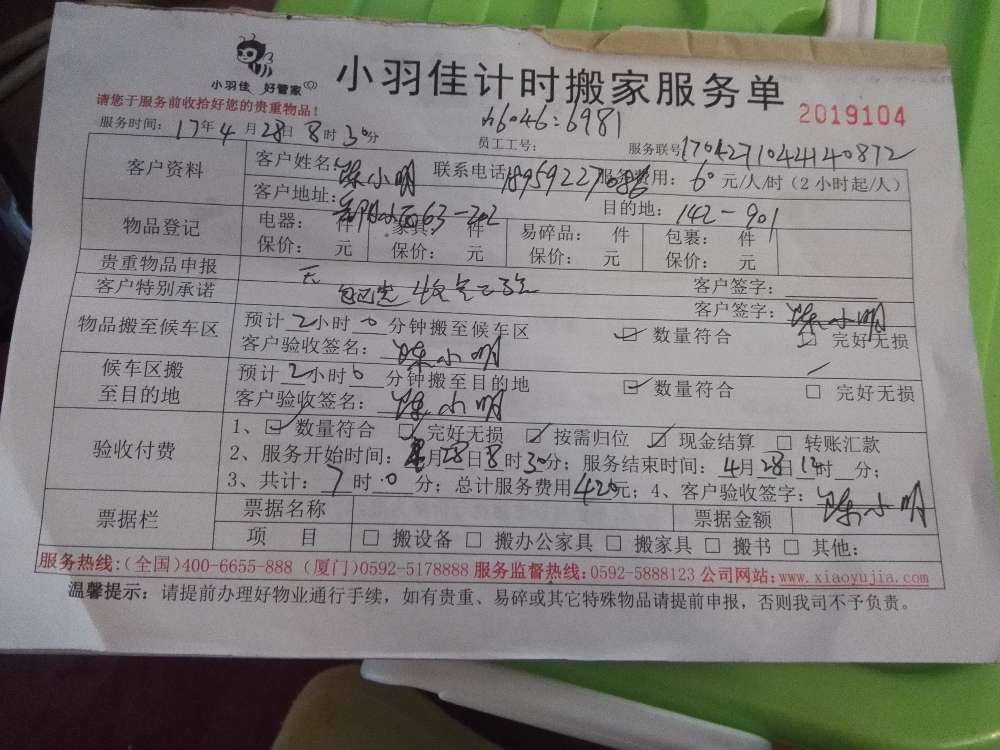 小羽佳 好管家
小羽佳计时搬家服务单
2019104
请您于服务前收拾好您的贵重物品！
服务时间：17年4月28日8时30分
员工工号：
6046:6981
服务联号1704271044140872
客户资料
客户姓名：陈小明 联系电话 服务费用：60元/人/时（2小时起/人）
客户地址：63-202 目的地：142-901
物品登记
电器： 件 家具： 件 易碎品： 件 包裹： 件
保价： 元 保价： 元 保价： 元 保价： 元
贵重物品申报 无 客户签字：
客户特别承诺 客户签字：陈小明
物品搬至候车区
预计2小时0分钟搬至候车区 ☑ 数量符合 □ 完好无损
客户验收签名：陈小明
候车区搬至目的地
预计2小时0分钟搬至目的地 ☑ 数量符合 □ 完好无损
客户验收签名：陈小明
验收付费
1、☑ 数量符合 ☑ 完好无损 ☑ 按需归位 ☑ 现金结算 □ 转账汇款
2、服务开始时间：月28日8时30分；服务结束时间：4月28日12时 分；
3、共计：7时0分；总计服务费用420元；4、客户验收签字：陈小明
票据栏
票据名称 票据金额
项 目 □ 搬设备 □ 搬办公家具 □ 搬家具 □ 搬书 □ 其他：
服务热线：（全国）400-6655-888（厦门）0592-5178888 服务监督热线：0592-5888123 公司网站：www.xiaoyujia.com
温馨提示：请提前办理好物业通行手续，如有贵重、易碎或其它特殊物品请提前申报，否则我司不予负责。